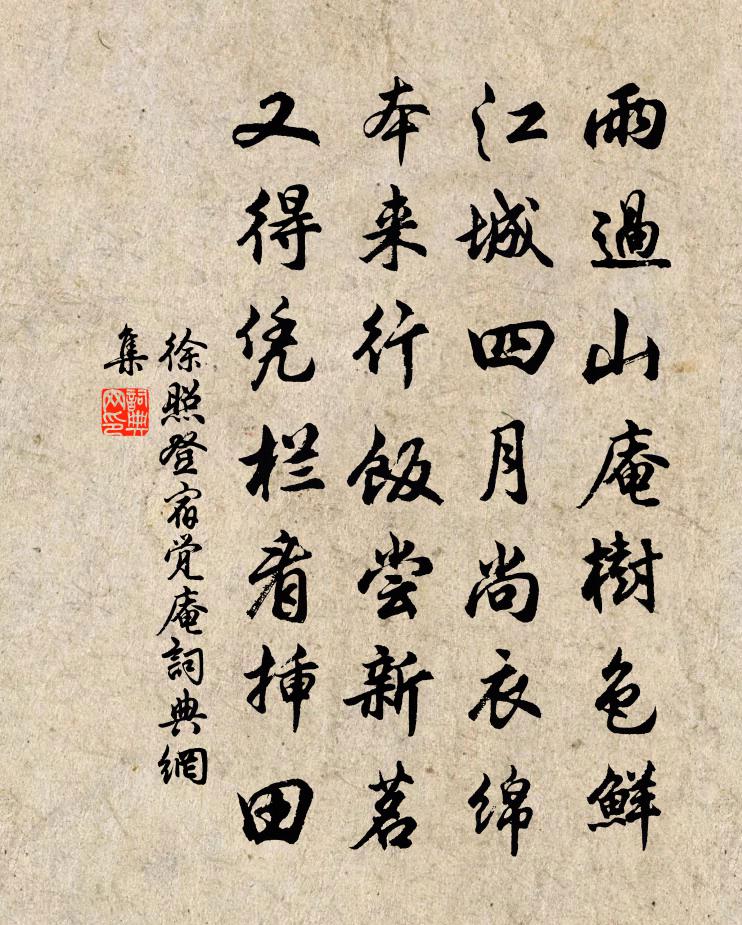 雨過山庵樹色鮮
江城四月尚衣綿
本来行飯嘗新茗
又得凭栏看揷田
徐照登宿觉庵詞典網
集
詞典
网印